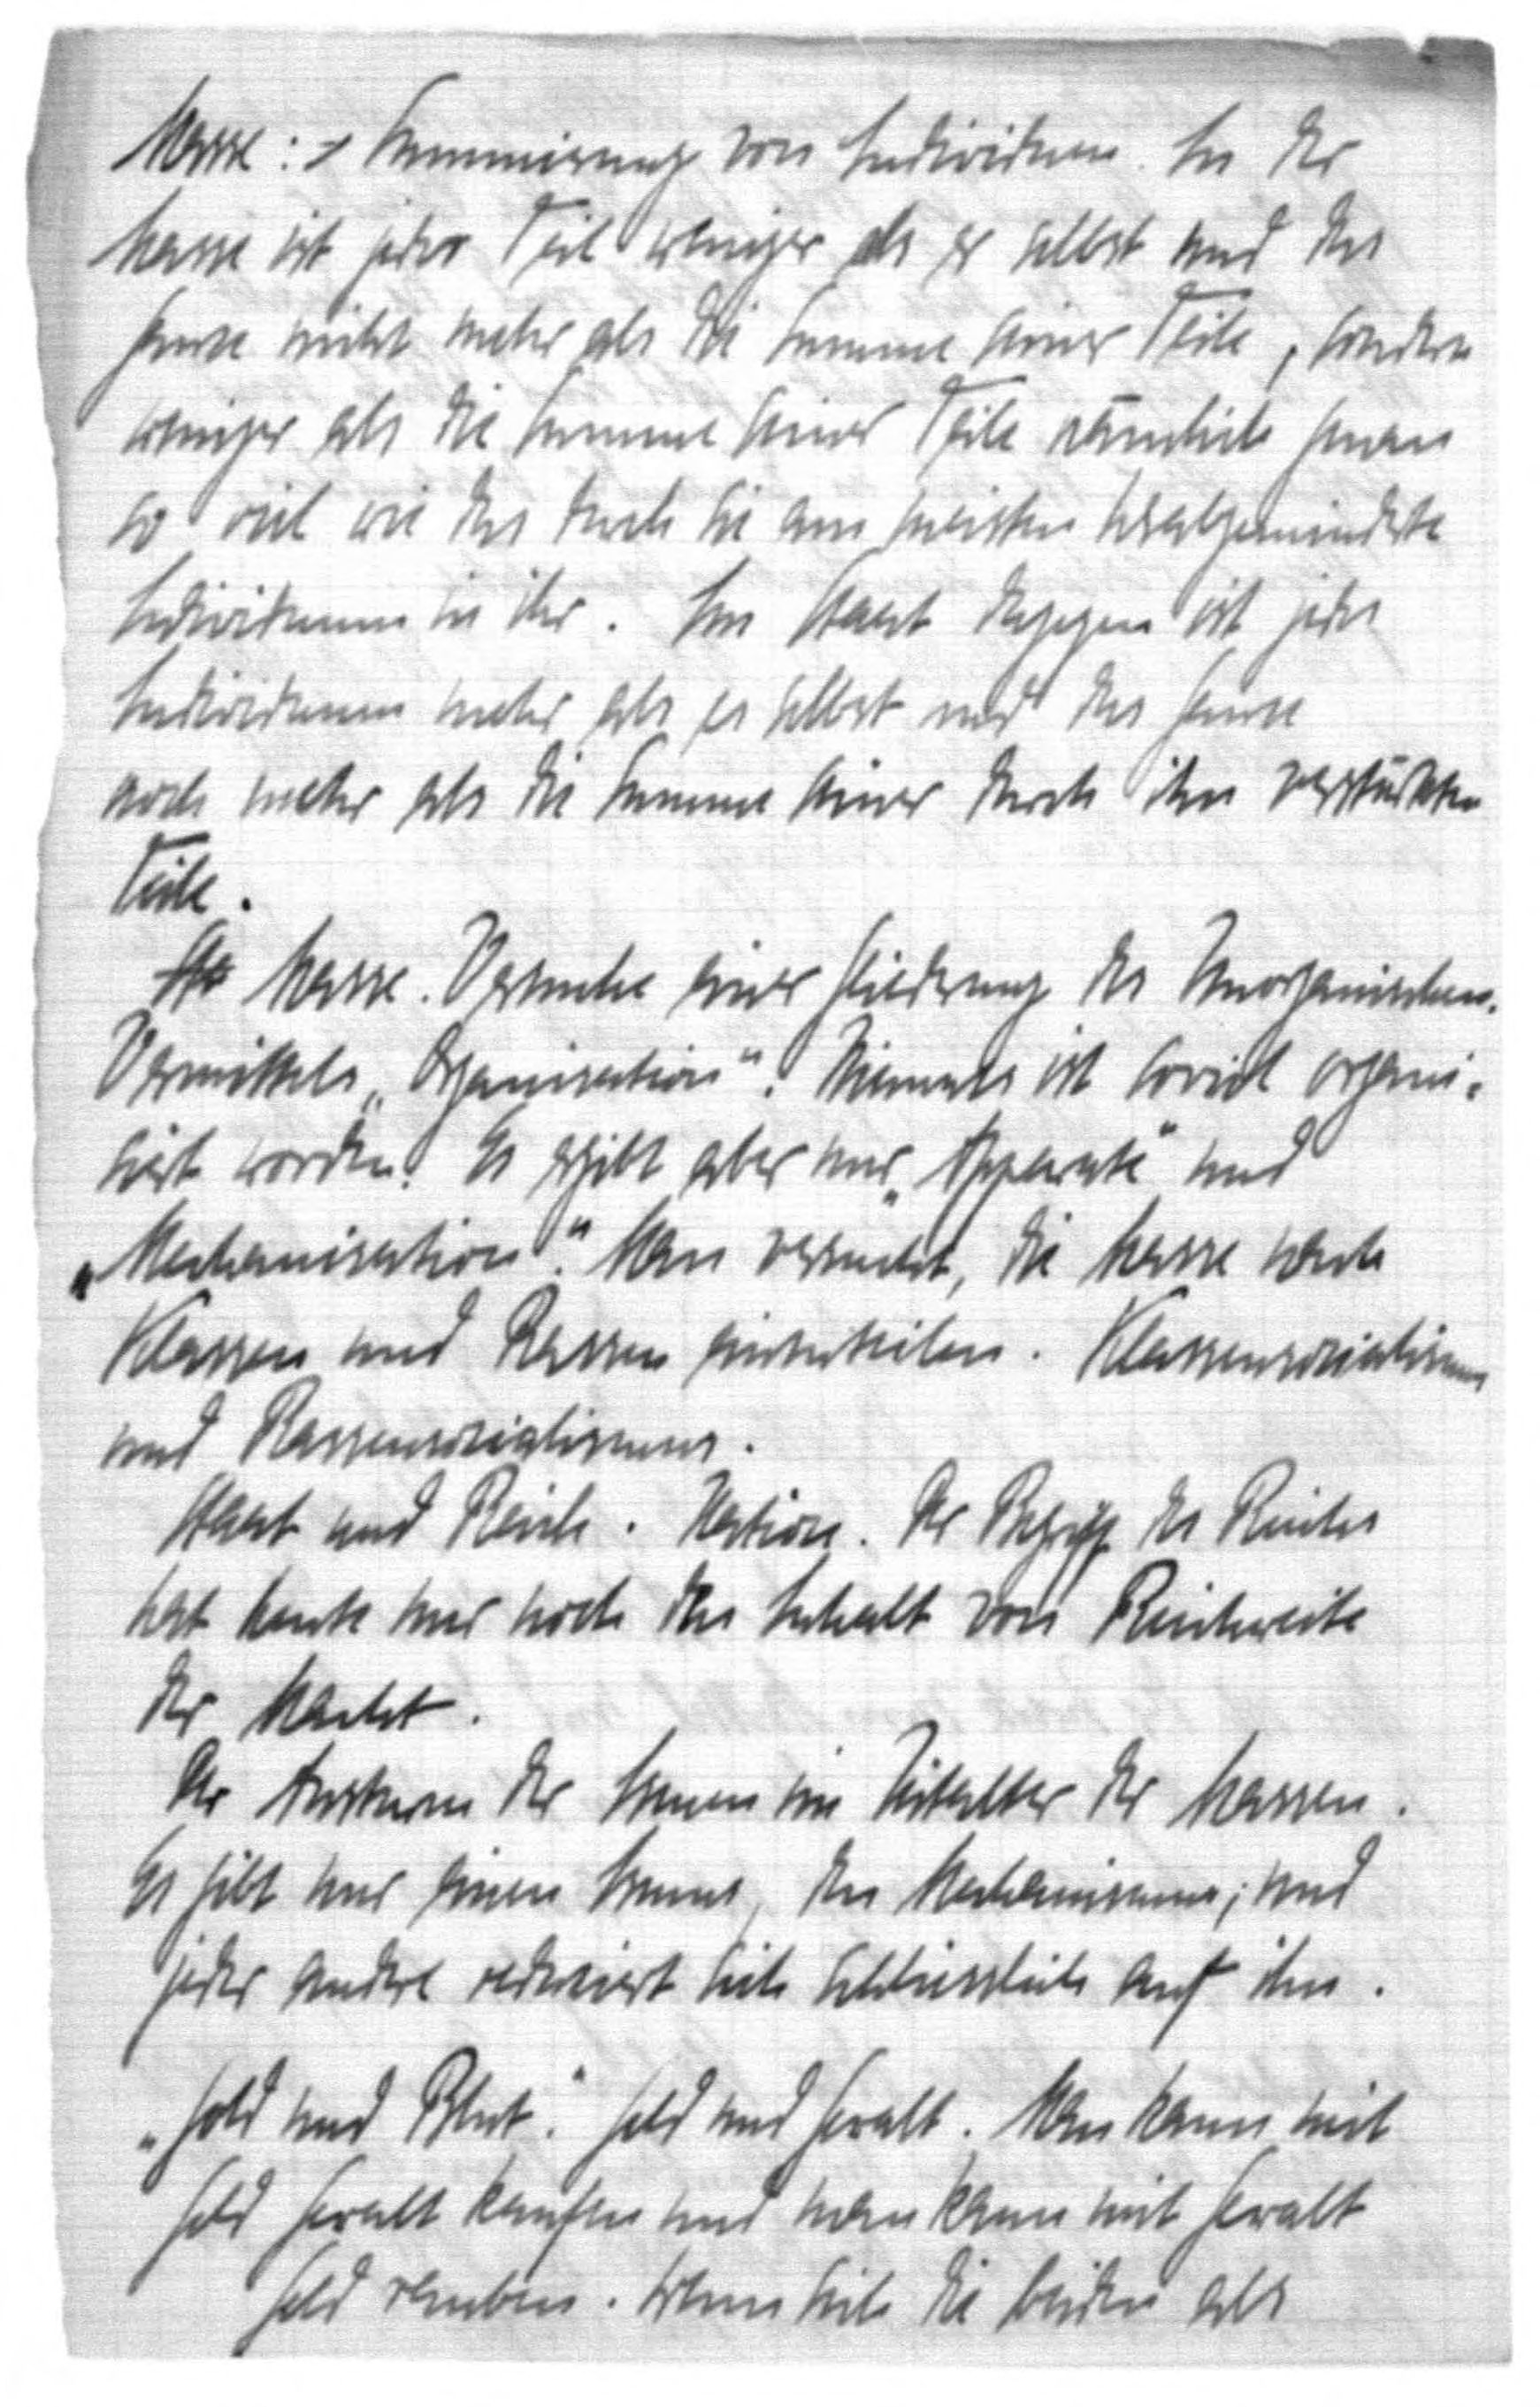 Masse: Summierung von Individuen. In der
Masse ist jeder Teil weniger als er selbst und das
Ganze nicht mehr als die Summe seiner Teile, sondern
weniger als die Summe seiner Teile nämlich genau
so viel wie das durch sie am meisten herabgeminderte
Individuum in ihr. Im Staat dagegen ist jedes
Individuum mehr als es selbst und das Ganze
noch mehr als die Summe seiner durch ihn verstärkten
Teile.
Masse. Versuche einer Gliederung des Unorganischen.
Vermittels „Organisation". Niemals ist soviel organi-
siert worden. Es ergibt aber nur „Apparate" und
„Mechanisation". Man versucht, die Masse nach
Klassen und Rassen einzuteilen. Klassensozialismus
und Rassensozialismus.
Staat und Reich. Nation. Der Begriff des Reiches
hat heute nur noch den Inhalt von Reichweite
der Macht.
Der Ansturm der Ismen im Zeitalter der Massen.
Es gibt nur einen Ismus, den Mechanismus; und
jeder andere reduziert sich schliesslich auf ihn.
„Gold und Blut". Geld und Gewalt. Man kann mit
Geld Gewalt kaufen und man kann mit Gewalt
Geld rauben. Wenn sich die beiden als